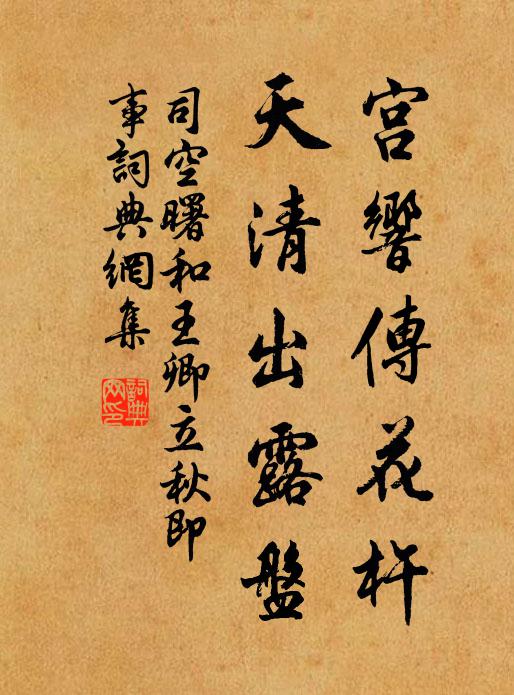 宮響傳花杵
天清出露盤
司空曙和王卿立秋即
事詞典網集
詞典網印